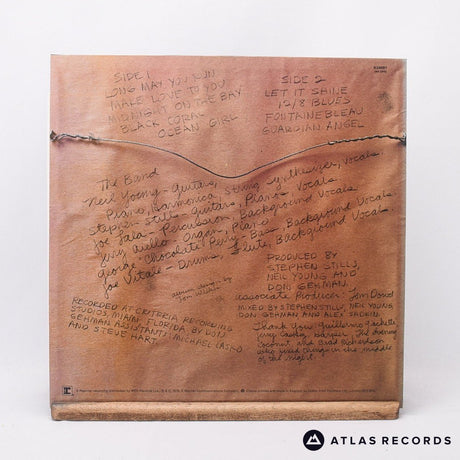 SIDE 1
LONG MAY YOU RUN
MAKE LOVE TO YOU
MIDNIGHT ON THE BAY
BLACK CORAL
OCEAN GIRL
SIDE 2
LET IT SHINE
12/8 BLUES
FONTAINEBLEAU
GUARDIAN ANGEL
The Band
Neil Young - Guitars,
Piano, Harmonica, String Synthesizer, Vocals.
Stephen Stills - Guitars, Piano, Vocals
Joe Lala - Percussion, Background Vocals
Jerry Aiello - Organ, Piano
George "Chocolate" Perry - Bass, Background Vocals
Joe Vitale - Drums, Flute, Background Vocals.
album design by
Tom Wilkes
RECORDED AT CRITERIA RECORDING
STUDIOS, MIAMI FLORIDA, BY DON
GEHMAN ASSISTANT: MICHAEL LASKO
AND STEVE HART
PRODUCED BY
STEPHEN STILLS,
NEIL YOUNG AND
DON GEHMAN.
Associate Producer Tom Dowd
MIXED BY STEPHEN STILLS, NEIL YOUNG
DON GEHMAN AND ALEX SADKIN
Thank You Guillermo Giachetti
harper The
Coconut and Brad Richardson
who fixed things in the middle
of the night.
ATLAS RECORDS